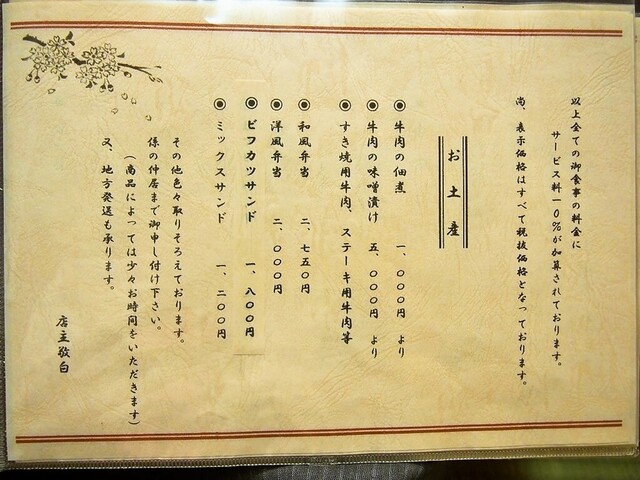 以上全ての御食事の料金に
サービス料一〇%が加算されております。
尚、表示価格はすべて税抜価格となっております。
お土産
◉牛肉の佃煮 一、〇〇〇円 より
◉牛肉の味噌漬け 五、〇〇〇円 より
◉すき焼用牛肉、ステーキ用牛肉等
◉和風弁当 二、七五〇円
◉洋風弁当 二、〇〇〇円
◉ビフカツサンド 一、八〇〇円
◉ミックスサンド 一、二〇〇円
その他色々取りそろえております。
係の仲居まで御申し付け下さい。
(商品によっては少々お時間をいただきます)
又、地方発送も承ります。
店主敬白